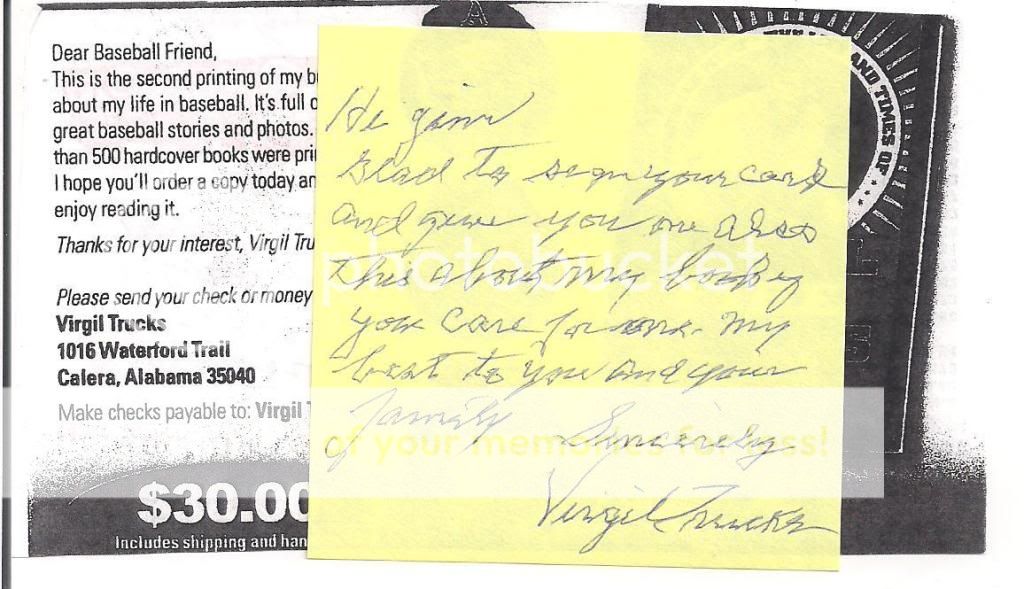 Dear Baseball Friend,
This is the second printing of my b
about my life in baseball. It's full o
great baseball stories and photos.
than 500 hardcover books were pri
I hope you'll order a copy today an
enjoy reading it.
Thanks for your interest, Virgil Tru
Please send your check or money
Virgil Trucks
1016 Waterford Trail
Calera, Alabama 35040
Make checks payable to: Virgil T
$30.00
Includes shipping and han
Hi Jim
Glad to sign your card
and give you one also
this about my book if
you care for one. My
best to you and your
family Sincerely
Virgil Trucks
AND TIMES OF
photobucket
of your memories for less!